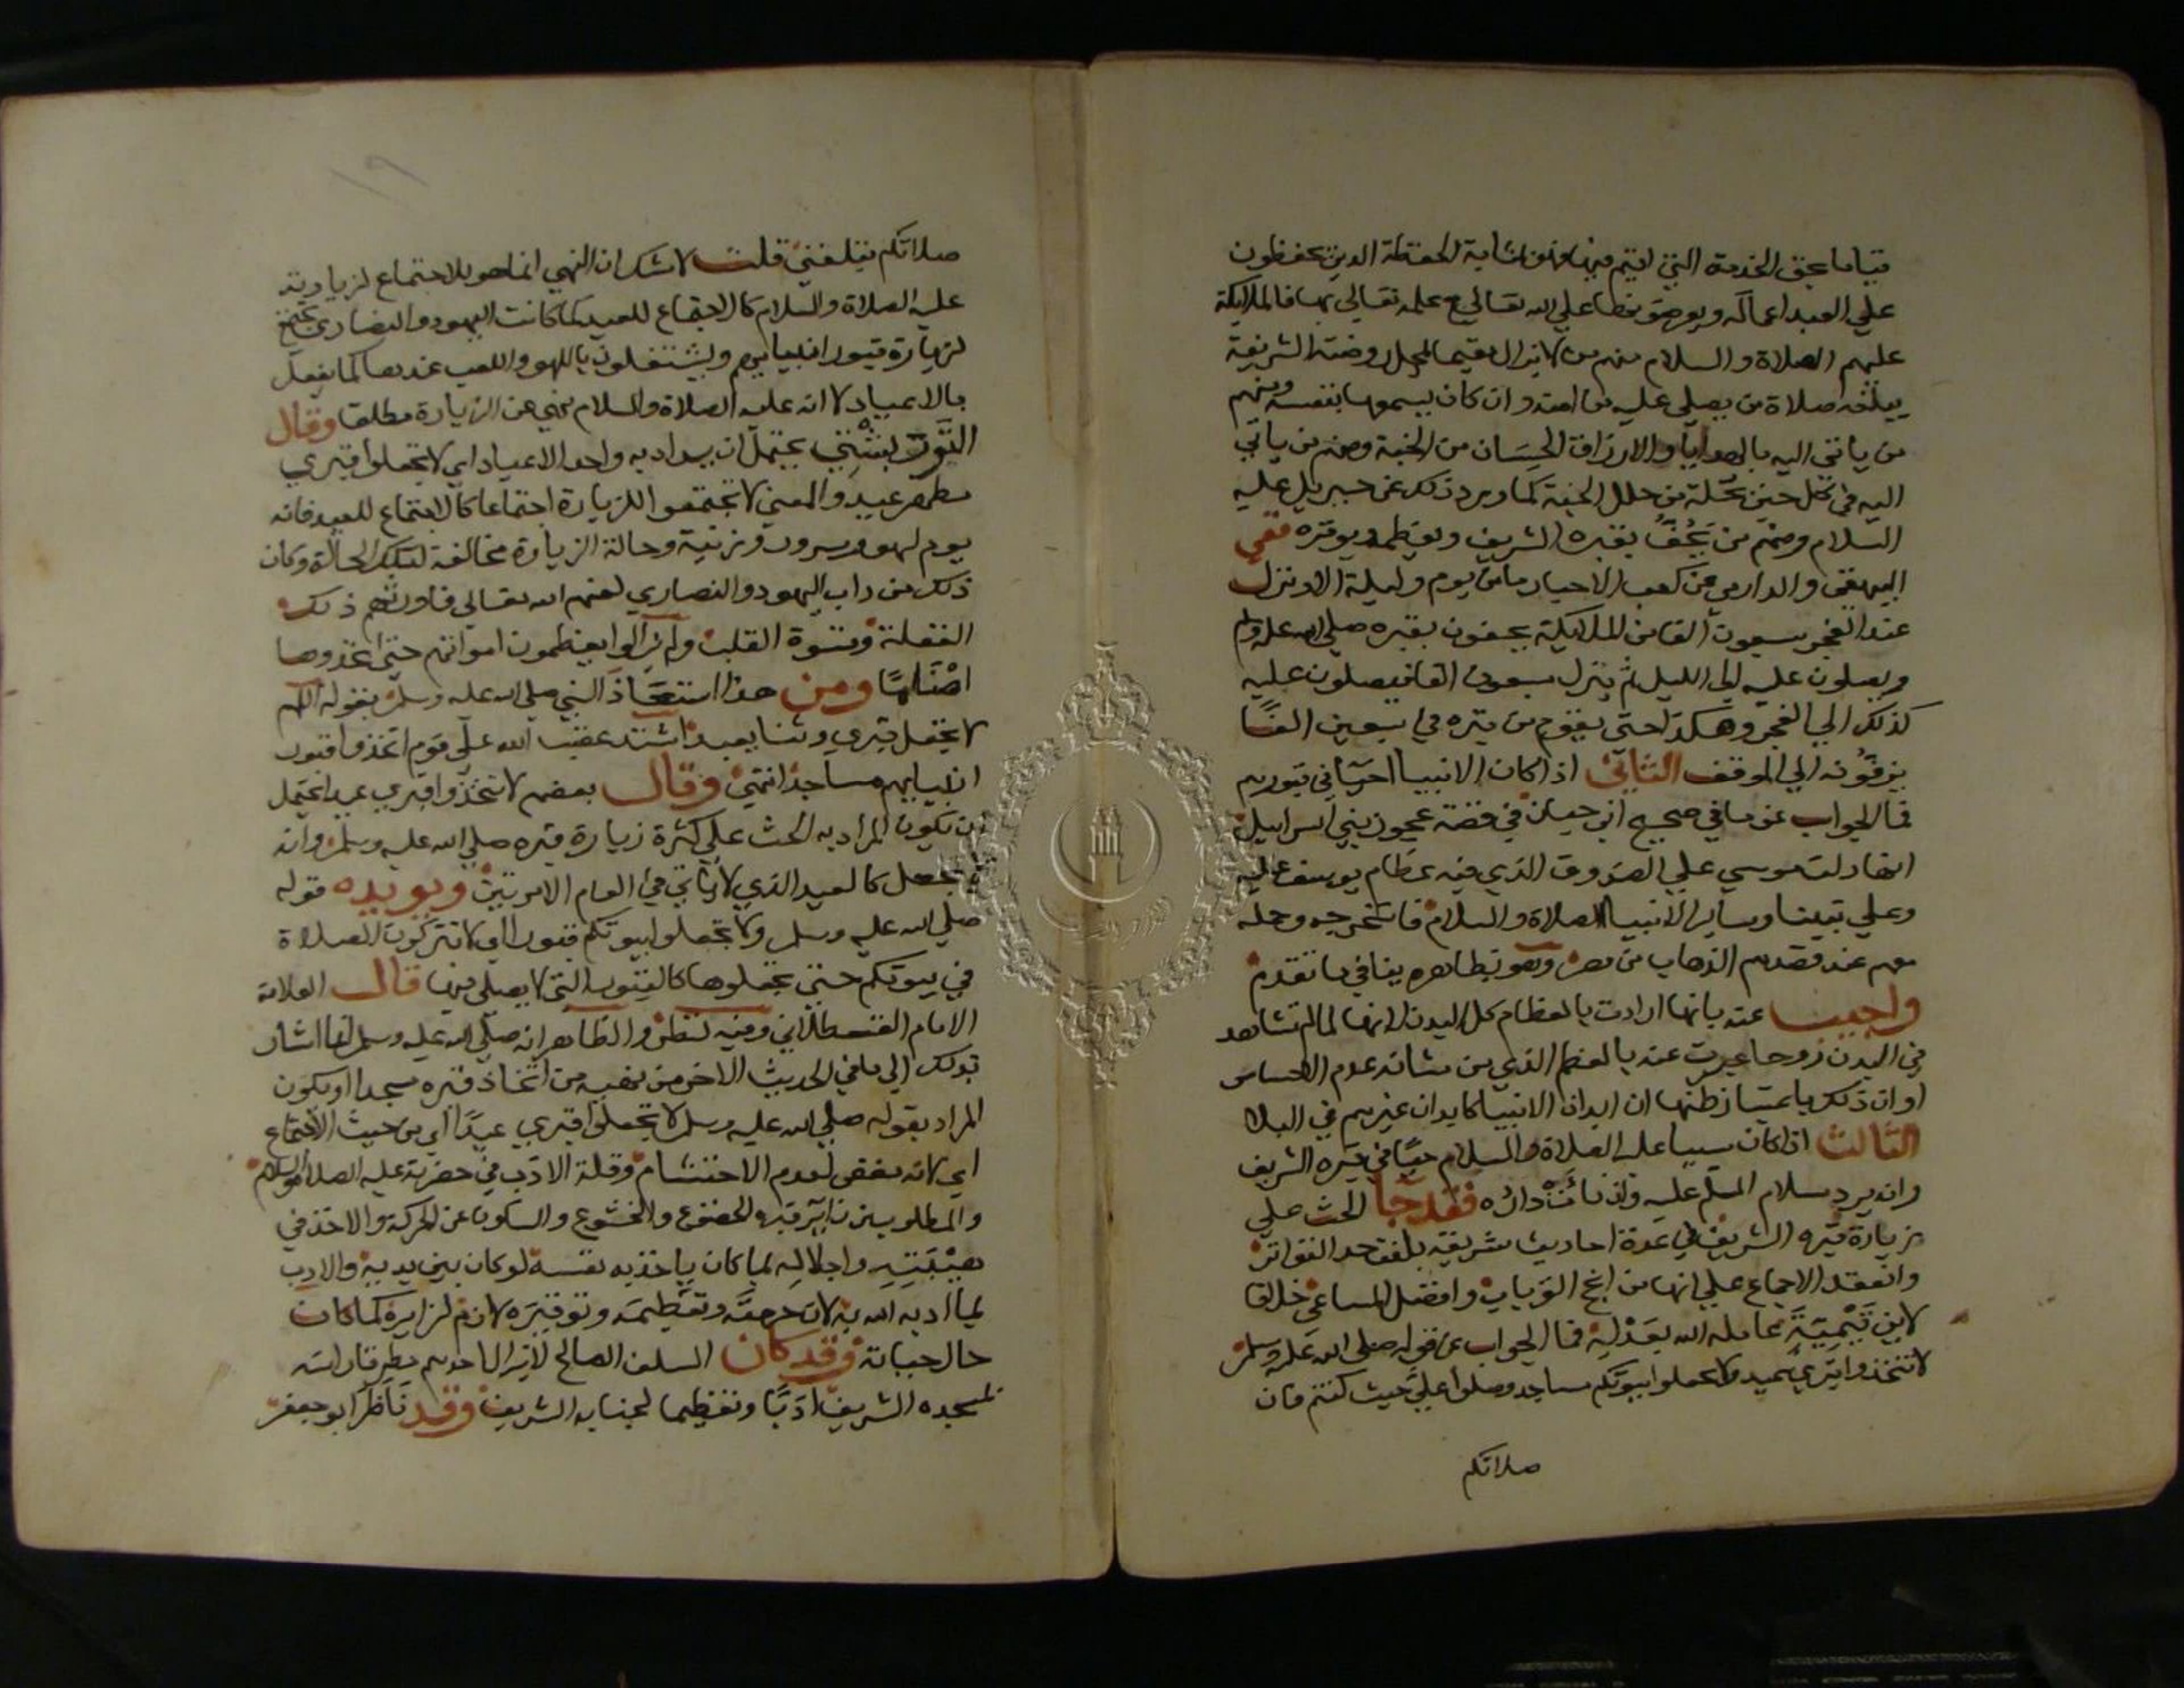 قياما بحق الخدمة التي اقيم فيها فهو بمثابة الحفظة الذين يحفظون
علي العبد اعماله ويعرضونها علي الله تعالي مع علمه تعالي بها فالملايكة
عليهم الصلاة والسلام منهم من لا يزال مقيما لمحل روضته الشريفة
يبلغه صلاة من يصلي عليه من امته وان كان يسمعها بنفسه ومنهم
من ياتي اليه بالهدايا والارزاق الحسان من الجنة ومنهم من ياتي
اليه في كل حين بحلة من حلل الجنة كما ورد ذلك عن جبريل عليه
السلام ومنهم من يحف بقبره الشريف ويعظمه ويوقره ففي
البيهقي والدارمي عن كعب الاحبار ما من يوم وليلة الا وينزل
عند الفجر سبعون الفا من الملايكة يحفون بقبره صلي الله عليه وسلم
ويصلون عليه الي الليل ثم ينزل سبعون الفا فيصلون عليه
كذلك الي الفجر وهكذا حتي يقوم من قبره في سبعين الفا
يزفونه الي الموقف الثاني اذا كان الانبيا احيا في قبورهم
فما الجواب عن ما في صحيح ابن حبان في قصة عجوز بني اسراييل
انها دلت موسي علي الصندوق الذي فيه عظام يوسف عليه
وعلي نبينا وساير الانبيا الصلاة والسلام فاستخرجه وحمله
معهم عند قصدهم الذهاب من مصر وهو بظاهره ينافي ما تقدم
واجيب عنه بانها ارادت بالعظام كل البدن لانها لما لم تشاهد
في البدن روحا عبرت عنه بالعظم الذي من شانه عدم الاحساس
او ان ذلك باعتبار ظنها ان ابدان الانبيا كابدان غيرهم في البلا
الثالث اذا كان سيدنا عليه الصلاة والسلام حيا في قبره الشريف
وانه يرد سلام المسلم عليه
فقد جا الحث علي
زيارة قبره الشريف في عدة احاديث شريفة بلغت حد التواتر
وانعقد الاجماع علي انها من انجح القربات وافضل المساعي خلافا
لابن تيمية عامله الله بعدله فما الجواب عن قوله صلي الله عليه وسلم
لا تتخذوا قبري عيدا ولا تجعلوا بيوتكم مساجد وصلوا علي حيث كنتم فان
صلاتكم
صلاتكم تبلغني قلت لا شك ان النهي انما هو للاجتماع لزيارته
عليه الصلاة والسلام كالاجتماع للعيد كما كانت اليهود والنصاري تجتمع
لزيارة قبور انبيايهم ويشتغلون باللهو واللعب عندها كما يفعل
بالاعياد لا انه عليه الصلاة والسلام نهي عن الزيارة مطلقا وقال
التوربشتي يحتمل ان يراد به واحد الاعياد اي لا تجعلوا قبري
مظهر عيد والمعني لا تجتمعوا للزيارة اجتماعا كالاجتماع للعيد فانه
يوم لهو وسرور وزينة وحالة الزيارة مخالفة لتلك الحالة وكان
ذلك من داب اليهود والنصاري لعنهم الله تعالي فاورثهم ذلك
الغفلة وقسوة القلب ولم يزالوا يعظمون امواتهم حتي اتخذوها
اصناما ومن هذا استعاذ النبي صلي الله عليه وسلم بقوله اللهم
لا تجعل قبري وثنا يعبد اشتد غضب الله علي قوم اتخذوا قبور
انبيايهم مساجد انتهي وقال بعضهم لا تتخذوا قبري عيدا يحتمل
ان يكون المراد به الحث علي كثرة زيارة قبره صلي الله عليه وسلم وانه
لا يجعل كالعيد الذي لا ياتي في العام الا مرتين ويويده قوله
صلي الله عليه وسلم ولا تجعلوا بيوتكم قبورا اي لا تتركون الصلاة
في بيوتكم حتي تجعلوها كالقبور التي لا يصلي فيها قال العلامة
الامام القسطلاني وفيه نظر والظاهر انه صلي الله عليه وسلم انما اشار
بذلك الي ما في الحديث الاخر من نهيه من اتخاذ قبره مسجدا او يكون
المراد بقوله صلي الله عليه وسلم لا تجعلوا قبري عيدا اي من حيث الاجتماع
اي لانه يفضي لعدم الاحتشام وقلة الادب في حضرته عليه الصلاة والسلام
والمطلوب من زاير قبره الخضوع والخشوع والسكون عن الحركة والاخذ في
هيبته واجلاله لما كان ياخذ به نفسه لو كان بين يديه والادب
لما ادبه الله به لان حرمته وتعظيمه وتوقيره لازم لزايره كما كان
حال حياته وقد كان السلف الصالح
لمسجده الشريف ادبا وتعظيما لجنابه الشريف وقد ناظر ابو جعفر